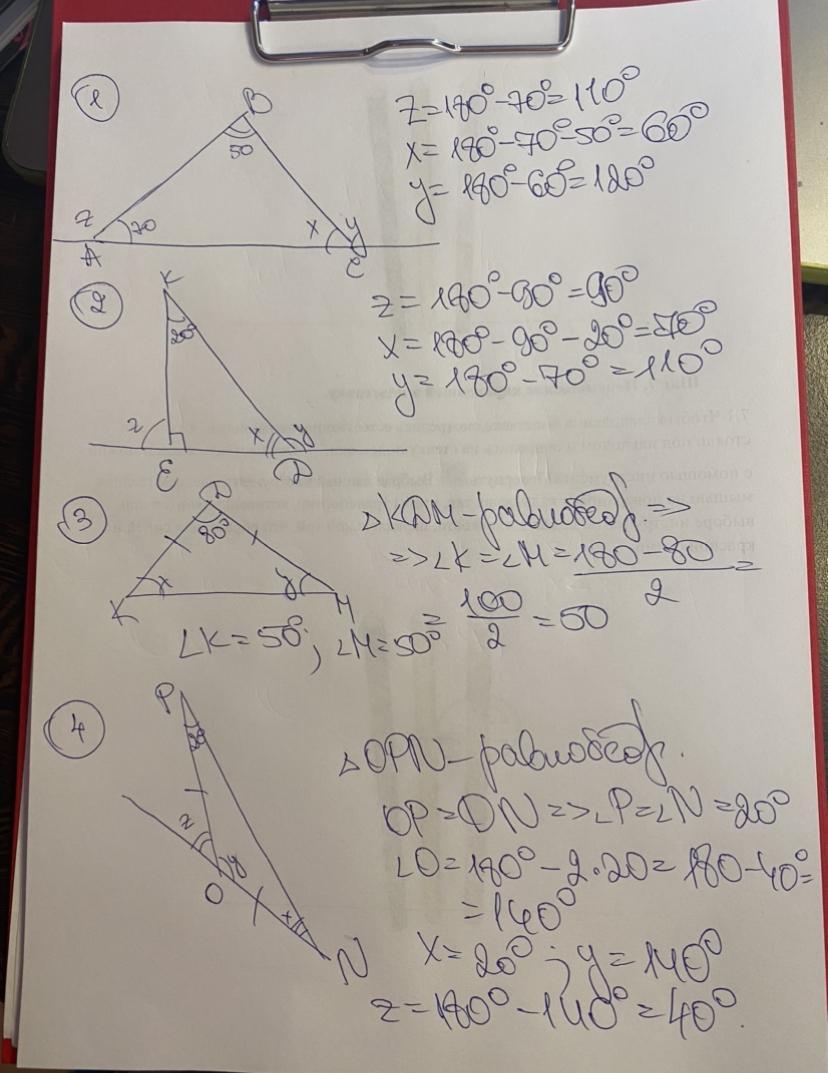 1
B
50
z
70
x
y
A
C
z=180°-70°=110°
x=180°-70°-50°=60°
y=180°-60°=120°
2
K
20°
z
x
y
E
D
z=180°-90°=90°
x=180°-90°-20°=70°
y=180°-70°=110°
3
D
80°
x
y
K
M
△KDM-равнобедр. =>
=>∠K=∠M=180-80/2=
=100/2=50
∠K=50°; ∠M=50°
4
P
20
z
y
O
x
N
△OPN-равнобедр.
OP=ON=>∠P=∠N=20°
∠O=180°-2·20=180-40°=
=140°
x=20°; y=140°
z=180°-140°=40°.